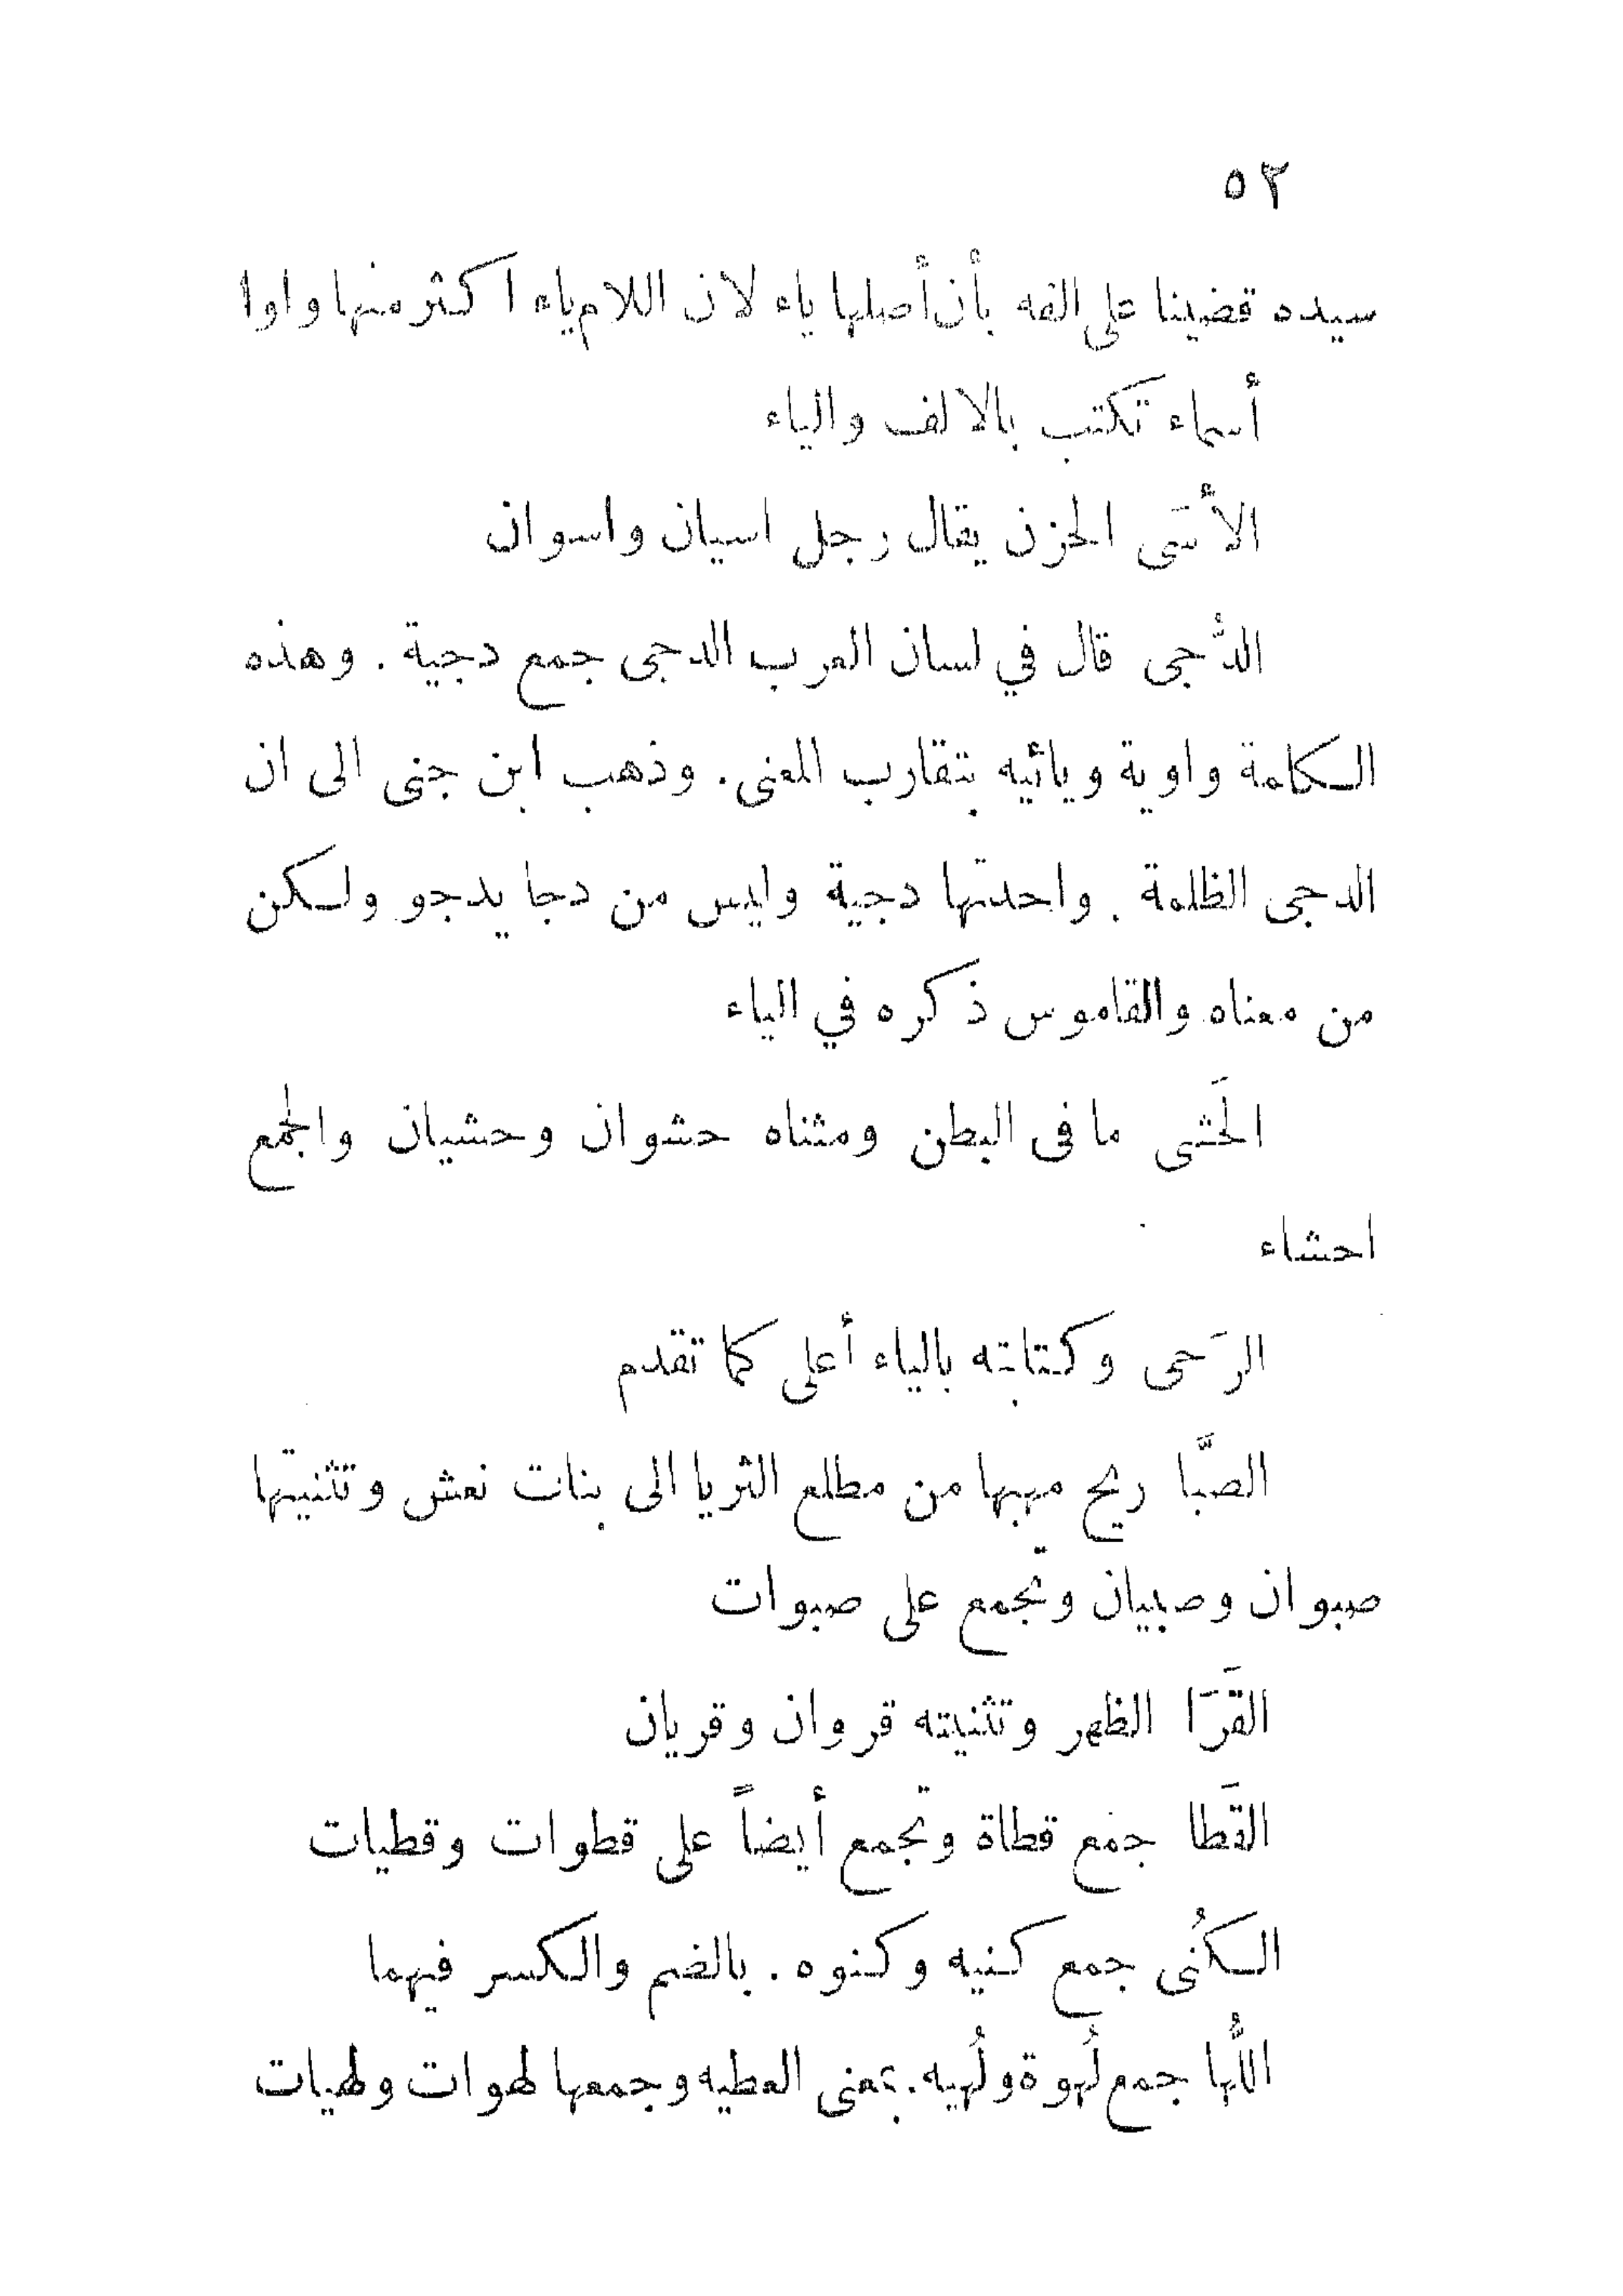 ٥٢
سيده قضينا على الفه بأن أصلها ياء لان اللام ياء اكثر منها واوا
أسماء تكتب بالالف والياء
الأسَى الحزن يقال رجل اسيان واسوان
الدُّجى قال في لسان العرب الدجى جمع دجية . وهذه
الكلمة واوية ويائيه بتقارب المعنى . وذهب ابن جنى الى ان
الدجى الظلمة . واحدتها دجية وليس من دجا يدجو ولكن
من معناه والقاموس ذكره في الياء
الحَشى ما فى البطن ومثناه حشوان وحشيان والجمع
احشاء
الرَحى وكتابته بالياء أعلى كما تقدم
الصَّبا ريح مهبها من مطلع الثريا الى بنات نعش وتثنيتها
صبوان وصبيان وتجمع على صبوات
القَرَا الظهر وتثنيته قروان وقريان
القَطا جمع قطاة وتجمع أيضاً على قطوات وقطيات
الكُنى جمع كنيه وكنوه . بالضم والكسر فيهما
اللُّها جمع لُهوة ولُهيه . بمعنى العطيه وجمعها لهوات ولهيات